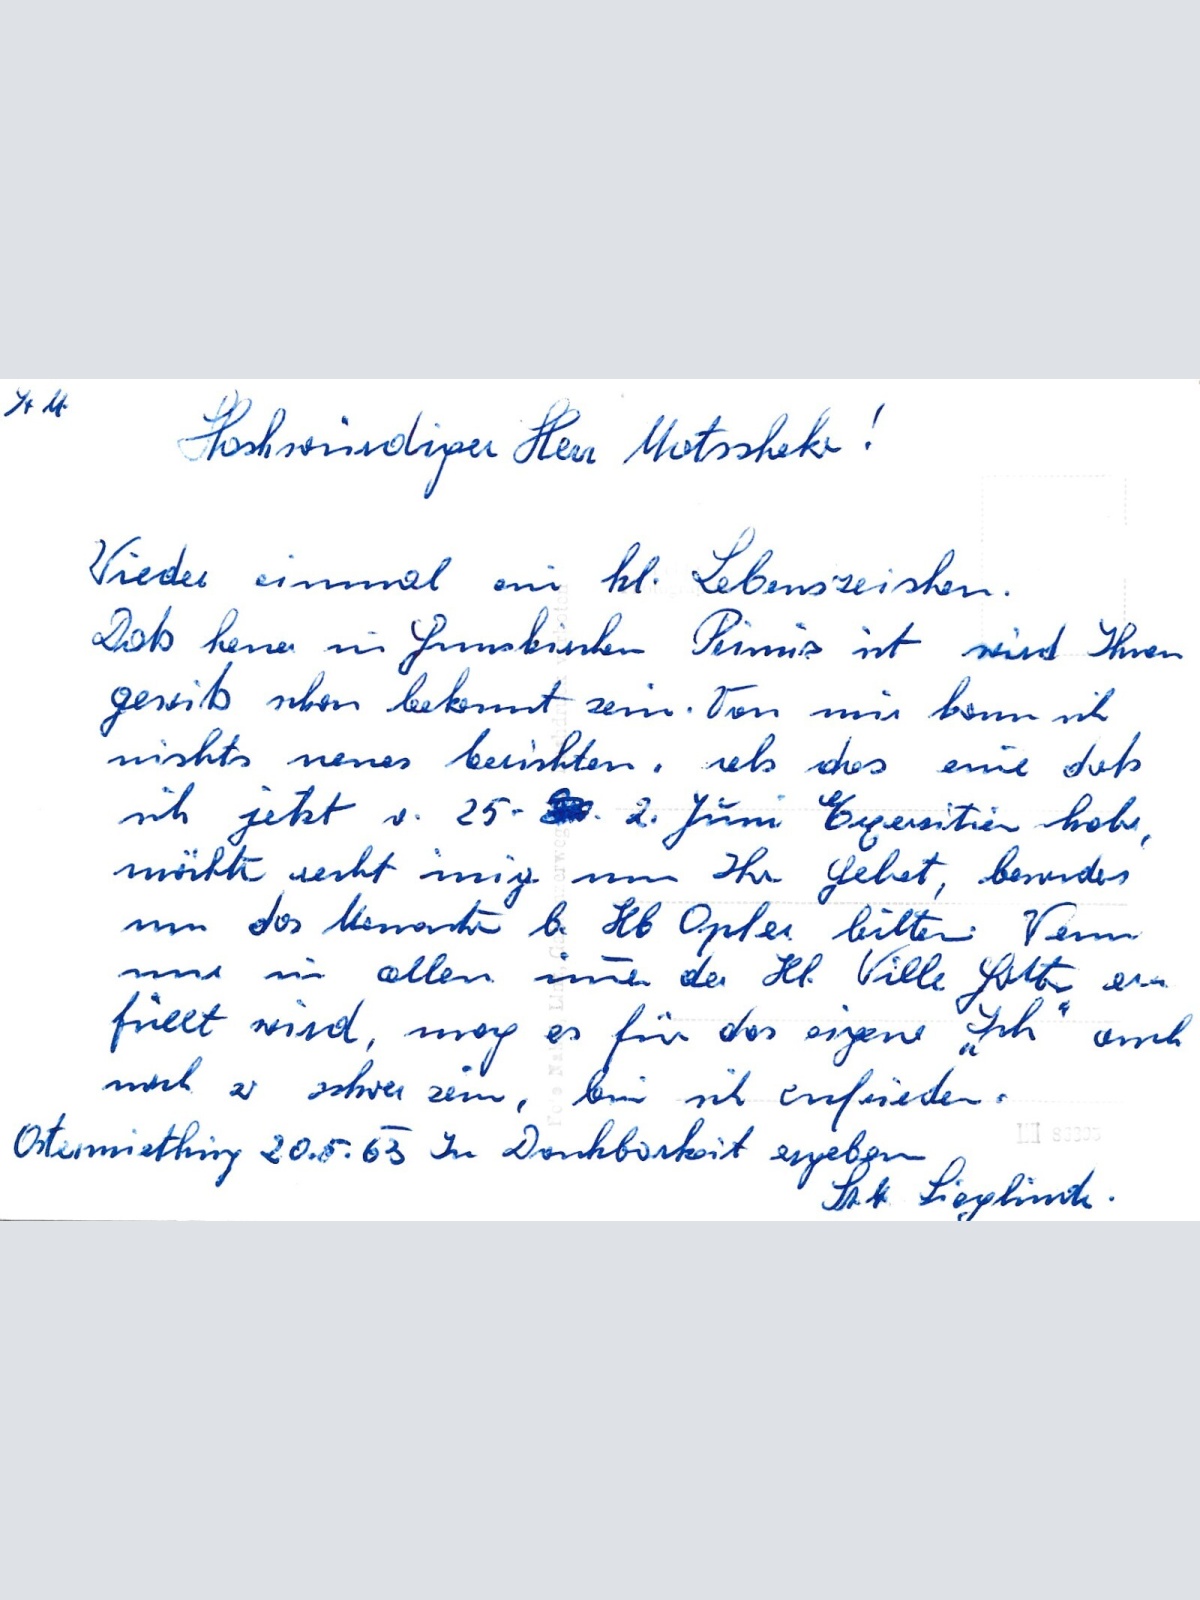 Hochwürdiger Herr Motscheke!
Wieder einmal ein kl. Lebenszeichen.
Daß heuer in Gunskirchen Primiz ist wird Ihnen
gewiß schon bekannt sein. Von mir kann ich
nichts neues berichten, als das eine daß
ich jetzt v. 25. - 2. Juni Exerzitien habe,
möchte recht innig um Ihr Gebet, besonders
um das b. Hl. Opfer bitten. Wenn
nur in allem immer der Hl. Wille Gottes er-
füllt wird, mag es für das eigene „Ich“ auch
noch so schwer sein, bin ich zufrieden.
Ostermiething 20.5.63 In Dankbarkeit ergeben
Sr. M. Sieglinde.